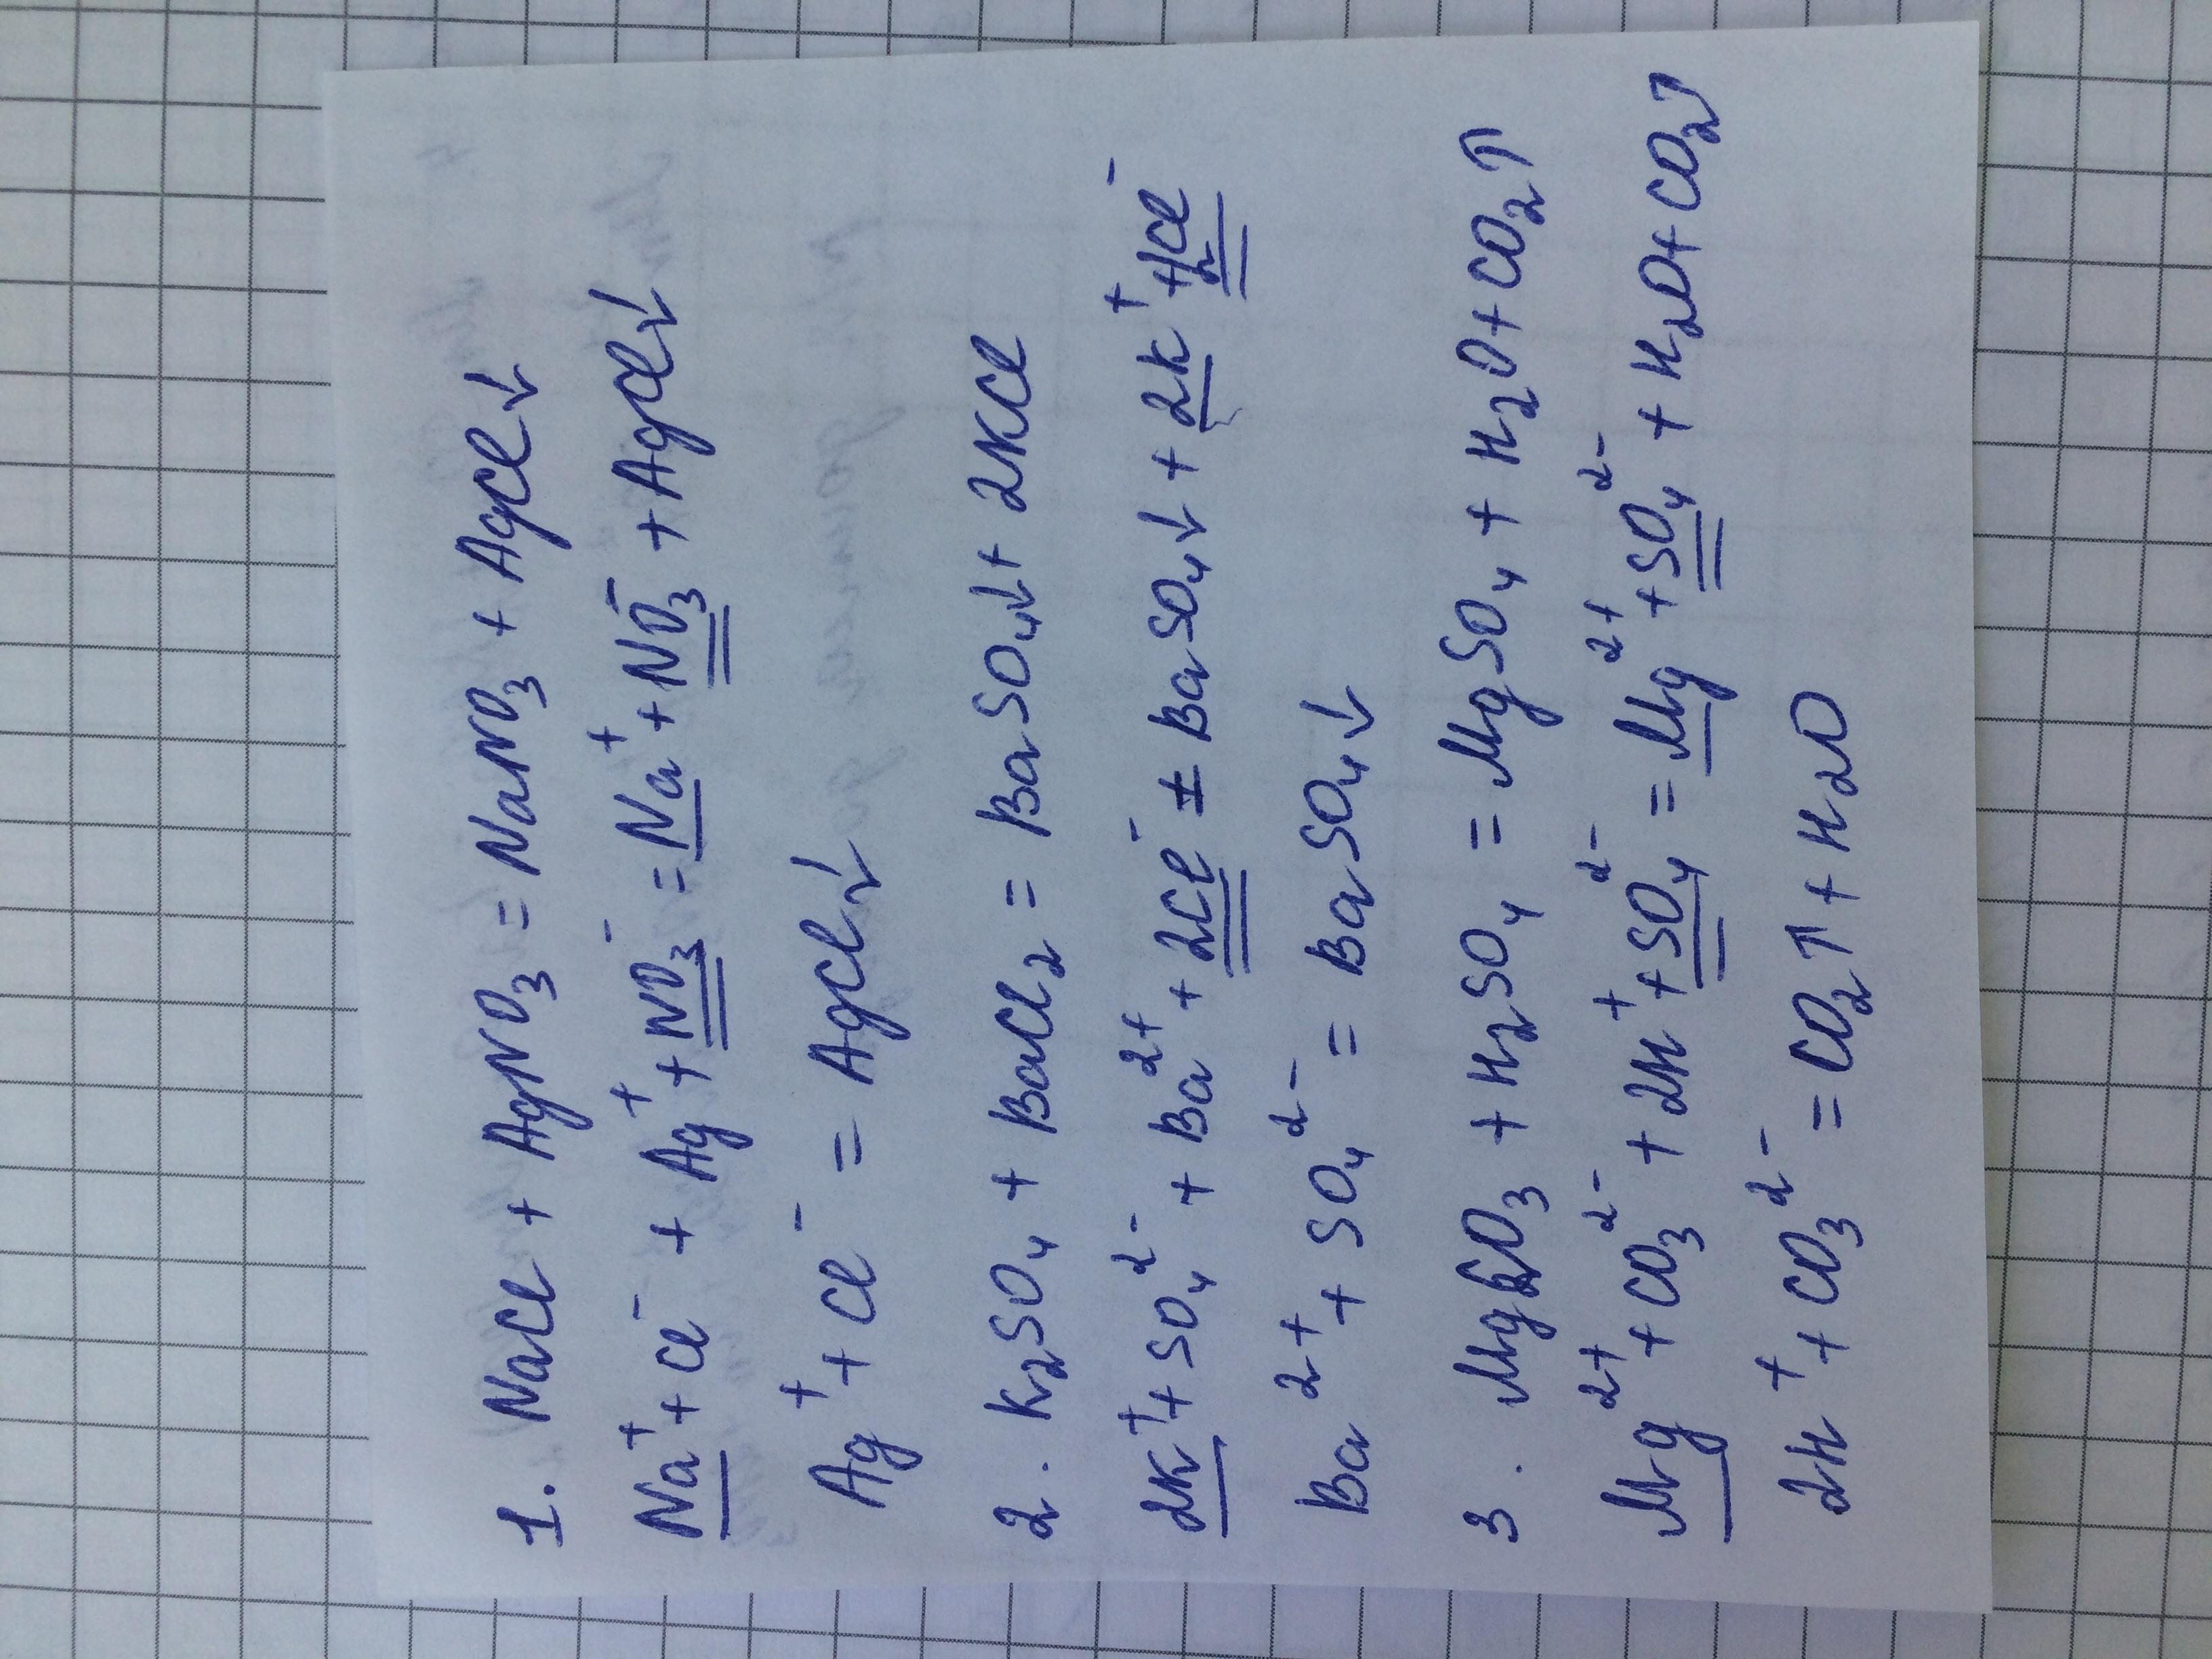 1. NaCl + AgNO₃ = NaNO₃ + AgCl↓
Na⁺ + Cl⁻ + Ag⁺ + NO₃⁻ = Na⁺ + NO₃⁻ + AgCl↓
Ag⁺ + Cl⁻ = AgCl↓
2. K₂SO₄ + BaCl₂ = BaSO₄↓ + 2KCl
2K⁺ + SO₄²⁻ + Ba²⁺ + 2Cl⁻ = BaSO₄↓ + 2K⁺ + 2Cl⁻
Ba²⁺ + SO₄²⁻ = BaSO₄↓
3. MgCO₃ + H₂SO₄ = MgSO₄ + H₂O + CO₂↑
Mg²⁺ + CO₃²⁻ + 2H⁺ + SO₄²⁻ = Mg²⁺ + SO₄²⁻ + H₂O + CO₂↑
2H⁺ + CO₃²⁻ = CO₂↑ + H₂O